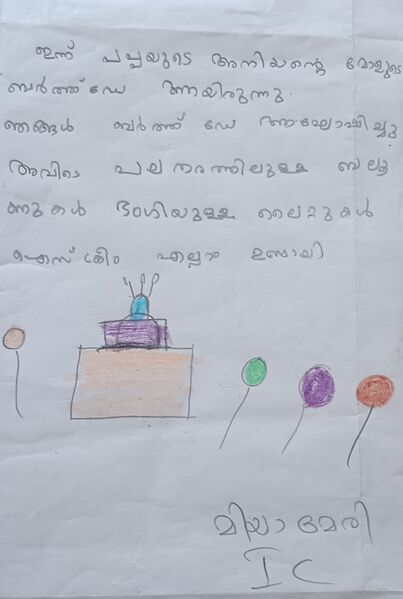 ഇന്ന് പപ്പയുടെ അനിയന്റെ മോളുടെ
ബർത്ത് ഡേ ആയിരുന്നു.
ഞങ്ങൾ ബർത്ത് ഡേ ആഘോഷിച്ചു
അവിടെ പല തരത്തിലുള്ള ബലൂ
ണുകൾ ഭംഗിയുള്ള ലൈറ്റുകൾ
ഐസ്ക്രീം എല്ലാം ഉണ്ടായി
മിയാ മേരി
I C